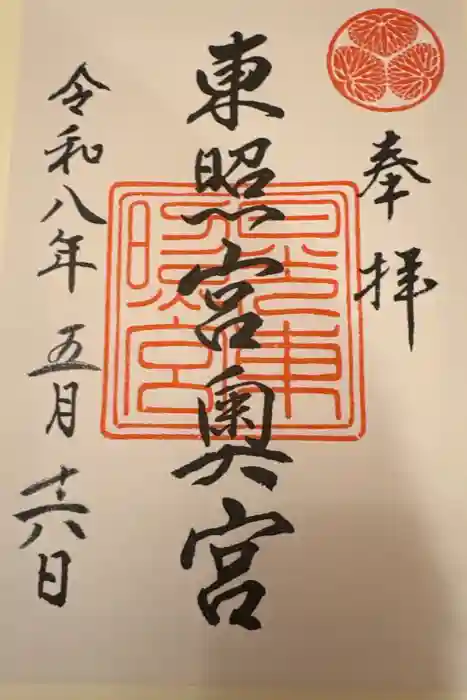 奉拝
東照宮奥宮
日光東照宮
令和八年五月十六日